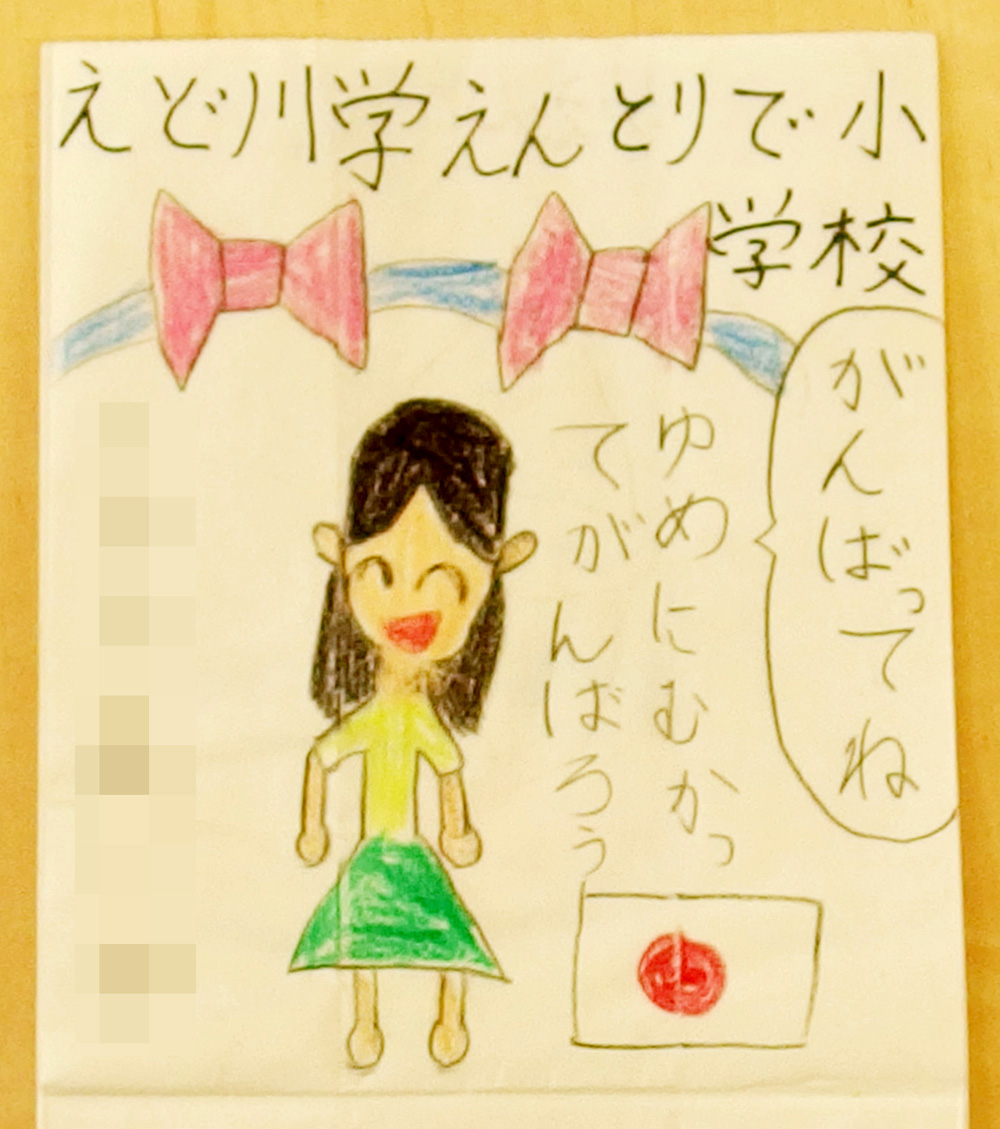 えど川学えんとりで小
学校
がんばってね
ゆめにむかっ
てがんばろう